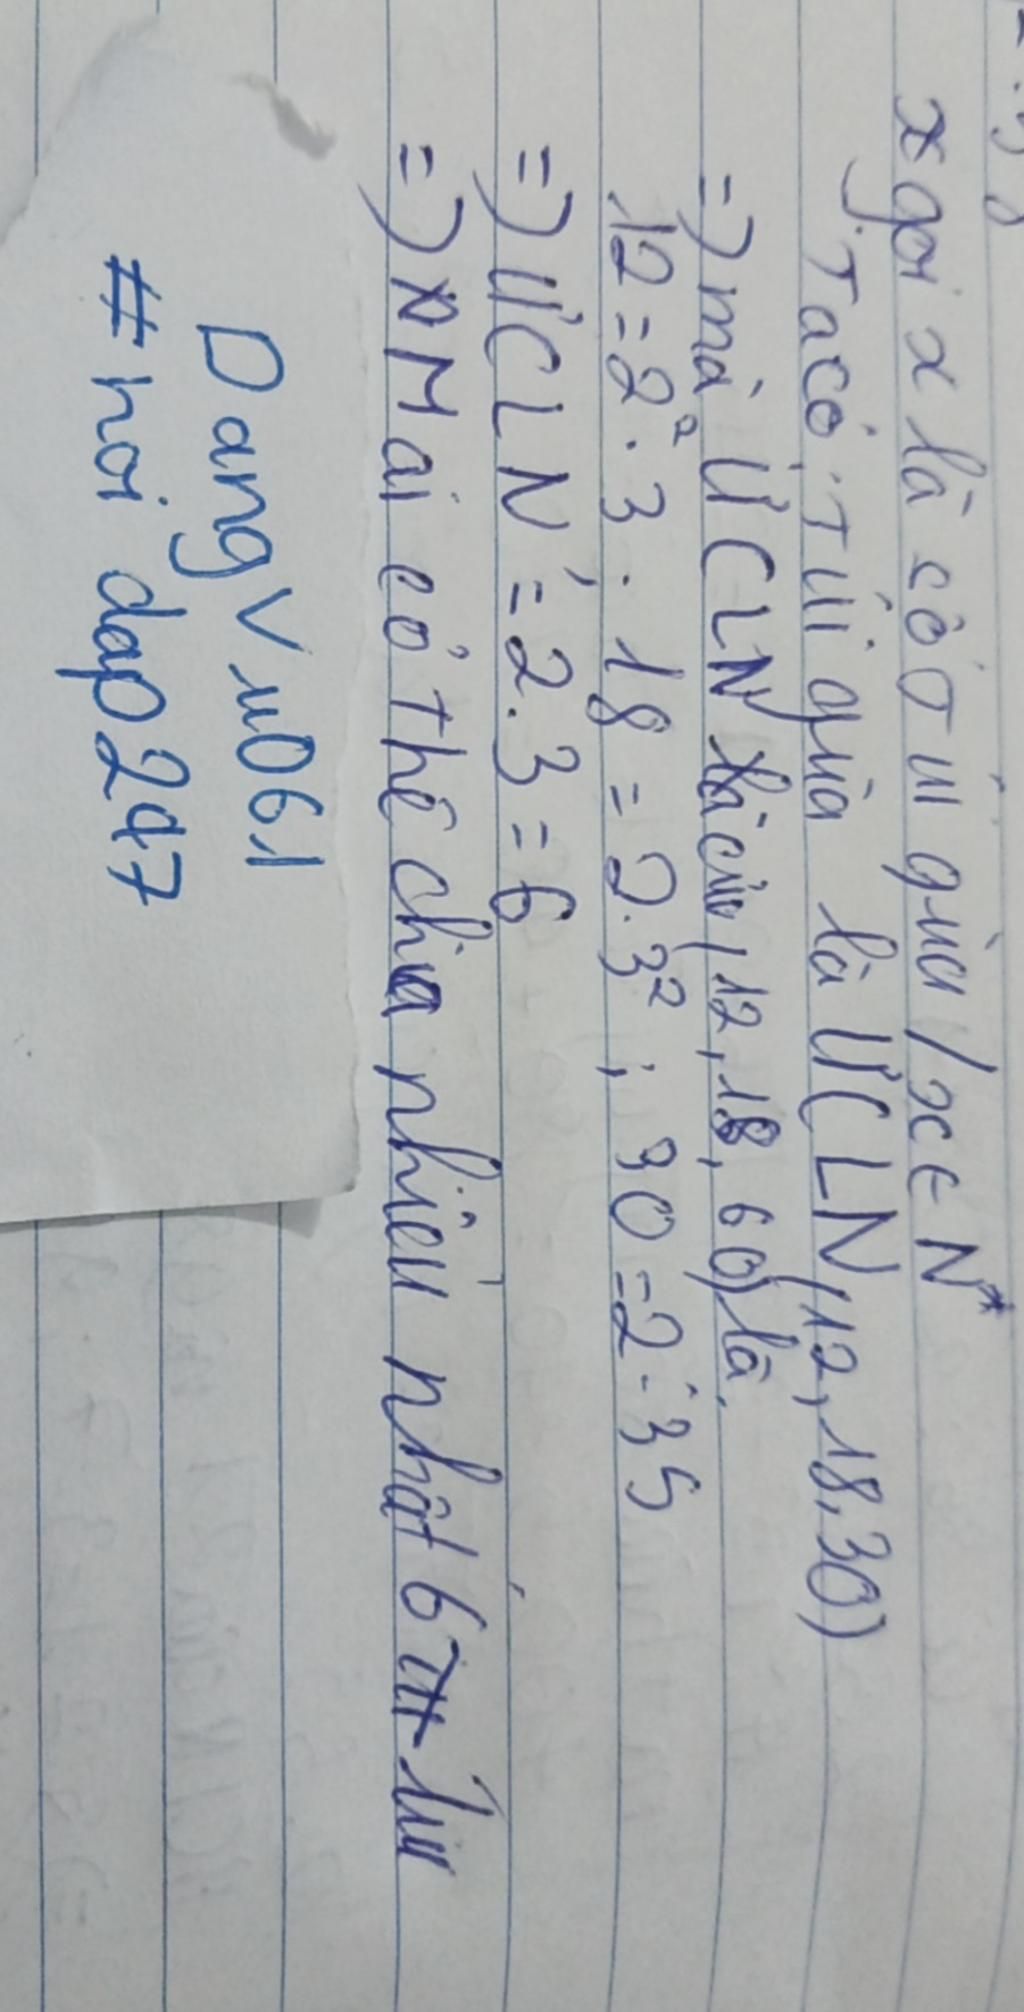 x gọi x là cô túi quà (x ∈ N*
Ta có: túi quà là ƯCLN (12, 18, 30)
=) mà ƯCLN của (12, 18, 60) là
12 = 2² . 3 . 18 = 2 . 3² ; 30 = 2 . 3 5
=) ƯCLN = 2 . 3 = 6
=) Mai có thể chia nhiều nhất 6 túi
Dang Vu061
# hoi dap 247